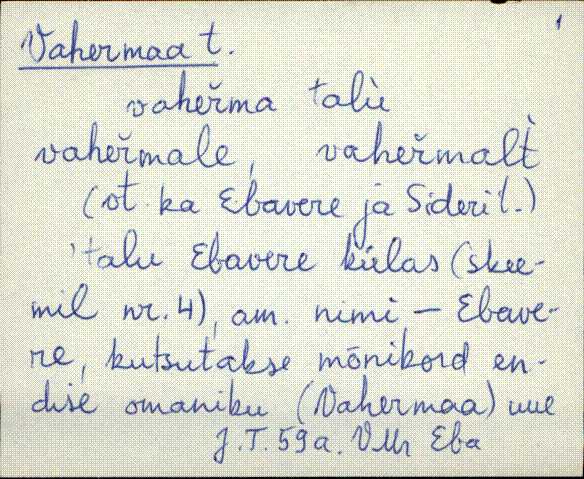 1
Vahermaa t.
vaheřma talu̇̀
vaheřmale, vaheřmalt̀
(vt. ka Ebavere ja Sideri t.)
talu Ebavere külas (skee-
mil nr. 4), am. nimi – Ebave-
re, kutsutakse mõnikord en-
dise omaniku (Vahermaa)
J.T. 59 a. VMr Eba